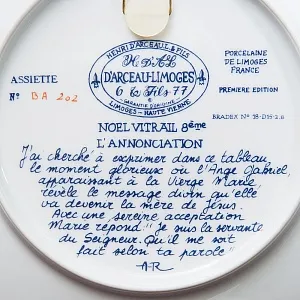 HENRI D'ARCEAU & FILS
H. D'A & L
D'ARCEAU-LIMOGES
6 & Fils-77
GARANTIE D'ORIGINE
LIMOGES - HAUTE VIENNE
ASSIETTE
Nº BA 202
PORCELAINE
DE LIMOGES
FRANCE
PREMIERE EDITION
BRADEX Nº 18-D15-2.8
NOEL VITRAIL 9ème
L'ANNONCIATION
J'ai cherché à exprimer dans ce tableau,
le moment glorieux où l'Ange Gabriel,
apparaissant à la Vierge Marie,
révèle le message divin qu'elle
va devenir la mère de Jésus.
Avec une sereine acceptation
Marie répond "Je suis la servante
du Seigneur. Qu'il me soit
fait selon ta parole"
AR